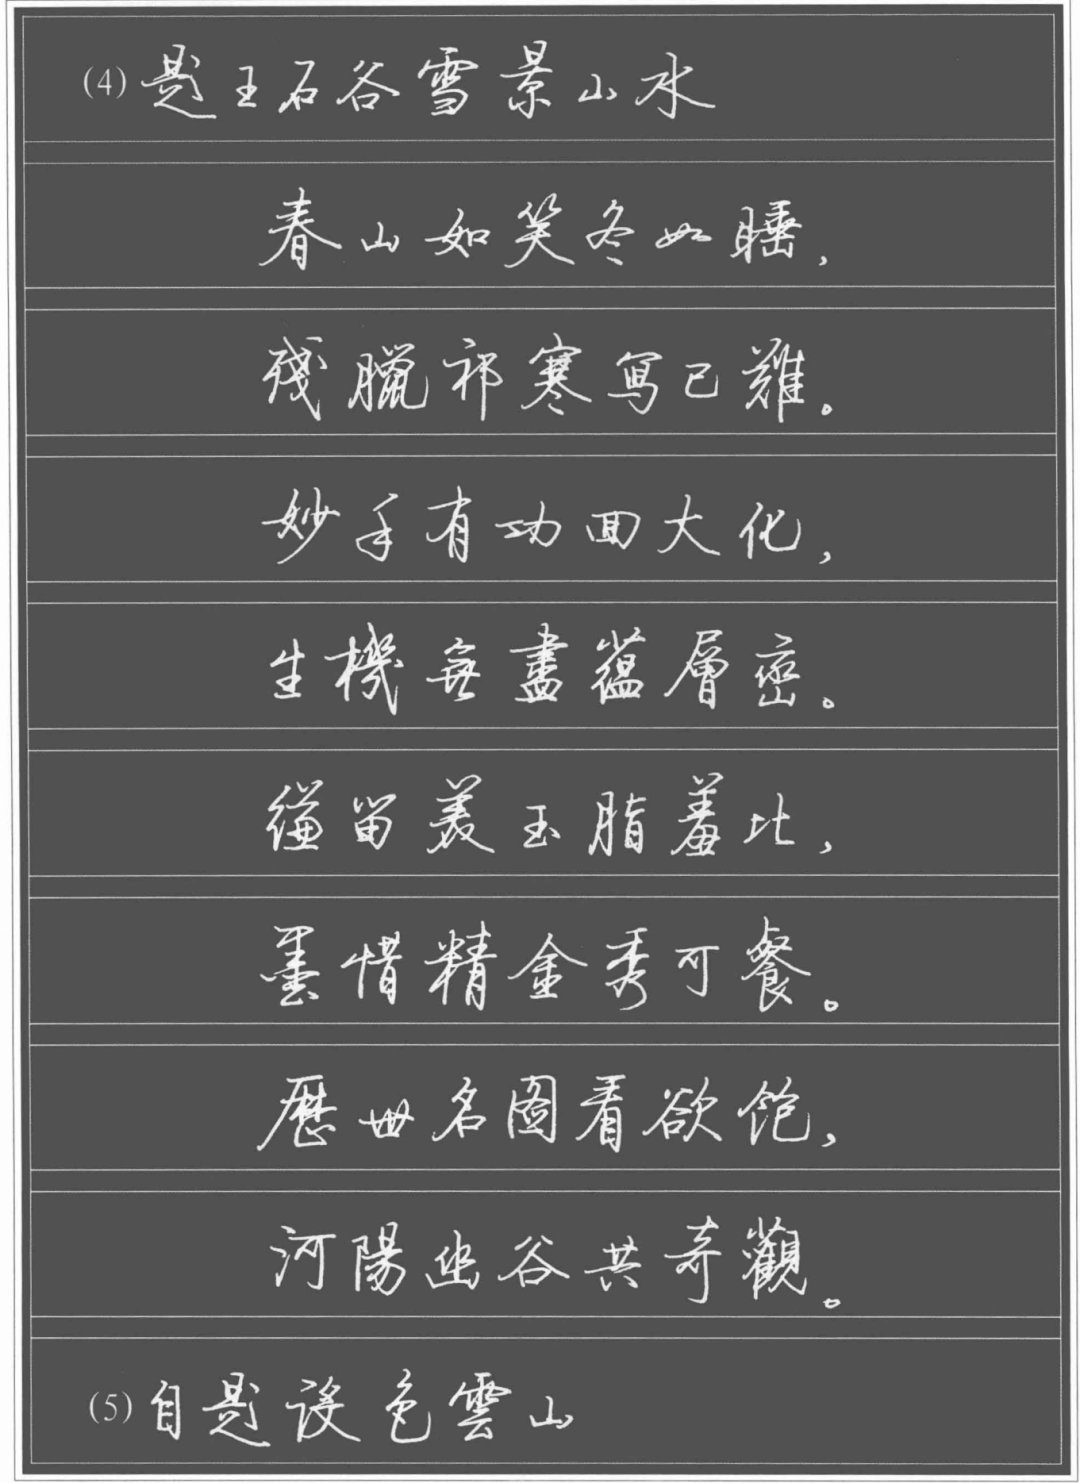 (4)題王石谷雪景山水
春山如笑冬如睡，
殘臘祁寒寫已難。
妙手有功回大化，
生機無盡蘊層巒。
縑留美玉脂羞比，
墨惜精金秀可餐。
歷世名圖看欲飽，
河陽幽谷共奇觀。
(5)自題設色雲山